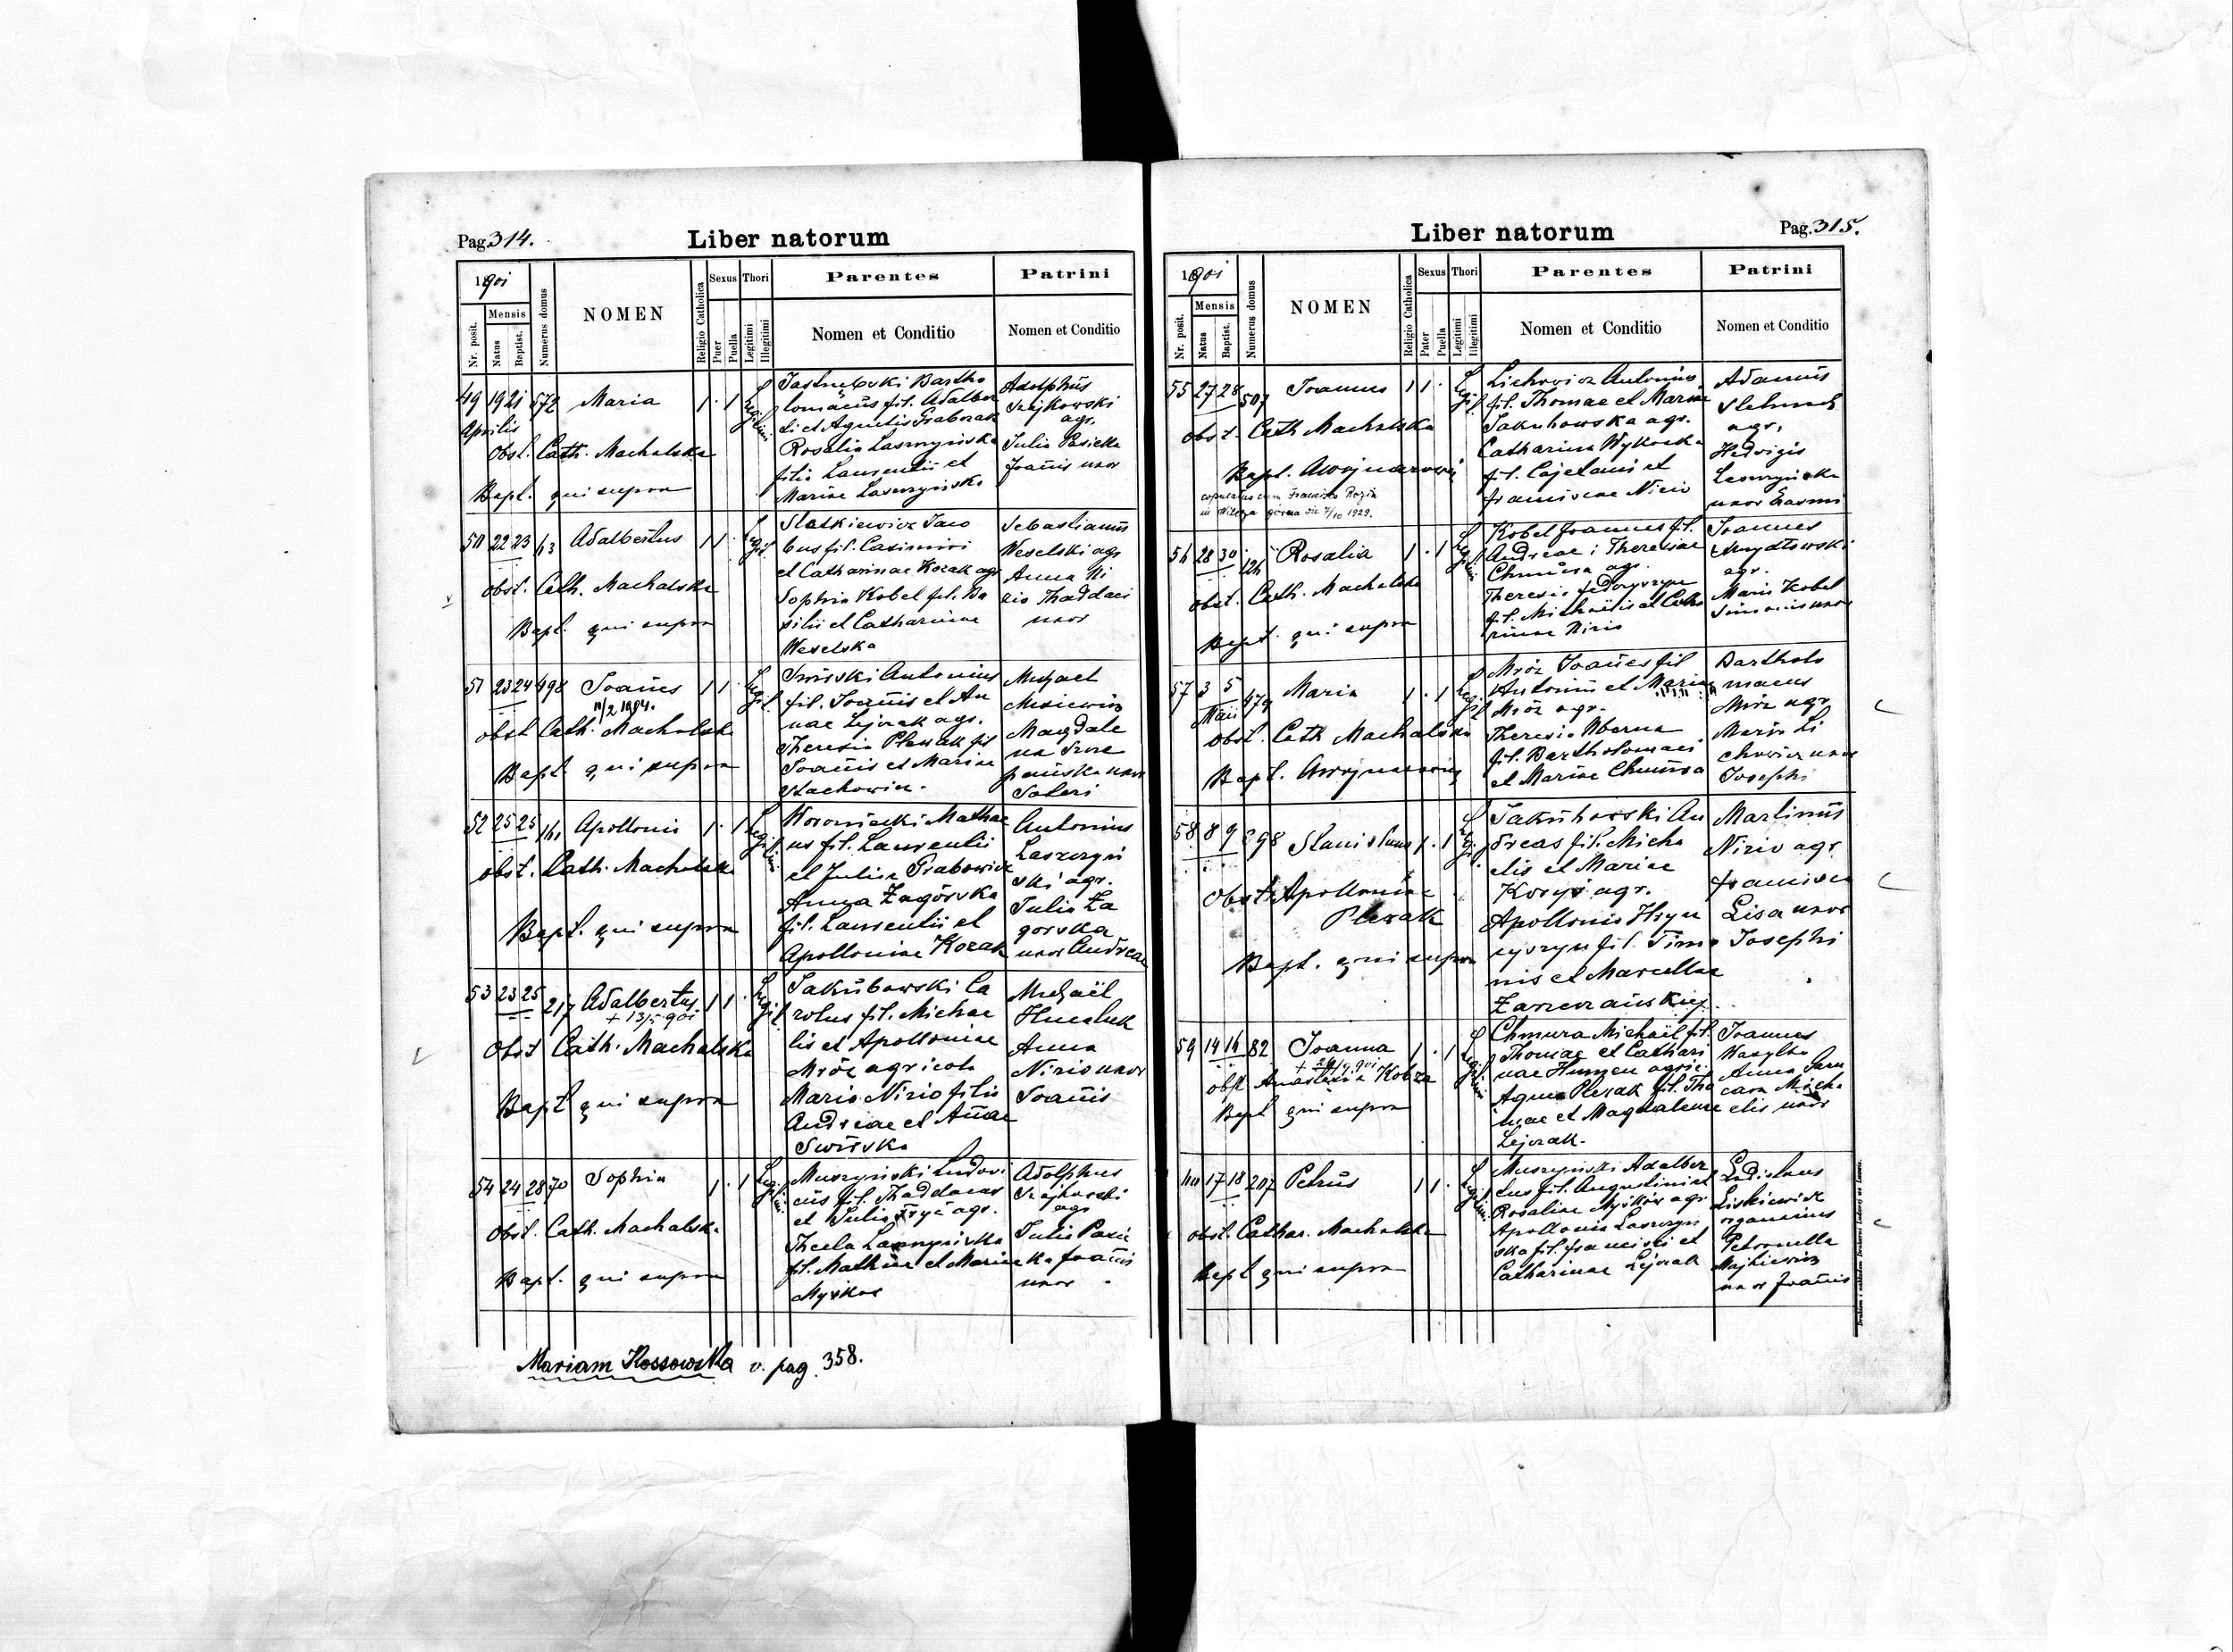 Pag. 314.
Liber natorum
1901
Nr. posit.
Mensis
Natus
Baptist.
Numerus domus
NOMEN
Religio Catholica
Sexus
Puer
Puella
Thori
Legitimi
Illegitimi
Parentes
Nomen et Conditio
Patrini
Nomen et Conditio
49 19 21 572 Maria 1 · 1
Aprilis
Obst. Cath. Machalska
Bapt. qui supra
Bartho
lomaeus fil. Adalber
ti et Agnetis
Rosalia
filia Laurentii et
Mariae
Adolphus
Szajkowski
agr.
Julia Pasicka
Joañis uxor
50 22 23 63 Adalbertus 1 1 ·
obst. Cath. Machalska
Bapt. qui supra
Slatkiewicz Jaco
bus fil. Casimiri
et Catharinae Kozak agr
Sophia Kobel fil. Ba
silii et Catharinae
Weselska
Sebastianus
Weselski agr
Anna Ni
zio Thaddaei
uxor
51 23 24 498 Joañes 1 1 ·
11/2 1904.
obst Cath. Machalska
Bapt. qui supra
Swirski Antonius
fil. Joañis et An
nae Lejczak agr.
Theresia Plexak fil
Joañis et Mariae
Stachowicz.
Michael
Misiewicz
Magdale
na
uxor
52 25 25 161 Apollonia 1 · 1
obst. Cath. Machalska
Bapt. qui supra
Woroniecki Mathae
us fil. Laurentii
et Juliae Grabowicz
Anna Zagórska
fil. Laurentii et
Apolloniae Kozak
Antonius
Laszczyń
ski agr.
Julia Za
gorska
uxor Andreae
53 23 25 217 Adalbertus 1 1 ·
+ 13/5 901
Obst Cath. Machalska
Bapt qui supra
Jakubowski Ca
rolus fil. Michae
lis et Apolloniae
Mróz agricola
Maria Nizio filia
Andreae et Añae
Swirska
Michaël
Anna
Nizio uxor
Joañis
54 24 28 70 Sophia 1 · 1
Obst. Cath. Machalska
Bapt. qui supra
Muszyński Ludovi
cus fil. Thaddaeus
et Julia agr.
Thecla
fil. Mathiae et Mariae
Myskov
Adolphus
Szajkowski
agr
Julia Pasic
ka Joañis
uxor
Mariam Kossowska v. pag. 358.
Pag. 315.
Liber natorum
1901
Nr. posit.
Mensis
Natus
Baptist.
Numerus domus
NOMEN
Religio Catholica
Sexus
Pater
Puella
Thori
Legitimi
Illegitimi
Parentes
Nomen et Conditio
Patrini
Nomen et Conditio
55 27 28 507 Joannes 1 1 ·
obst. Cath Machalska
Bapt.
copulatus cum Francisca
in górna die 7/10 1929.
Lichowicz Antonius
fil. Thomae et Mariae
Jakubowska agr.
Catharina
fil. Cajetani et
Franciscae Nizio
Adamus
agr.
Hedvigis
Laszczyńska
uxor Erasmi
56 28 30 126 Rosalia 1 · 1
obst. Cath. Machalska
Bapt. qui supra
Kobel Joannes fil.
Andreae i Theresiae
Chmura agr.
Theresia Fedoryszyn
fil. Michaëlis et Catha
rinae Nizio
Joannes
agr.
Maria Kobel
Simonis uxor
57 3 5 479 Maria 1 · 1
Maii
Obst. Cath Machalska
Bapt.
Mróz Joañes fil
Antonii et Mariae
Mróz agr.
Theresia
fil. Bartholomaei
et Mariae Chmura
Bartholo
maeus
Mróz agr
Maria Li
chowicz uxor
Josephi
58 8 9 298 Stanislaus 1 · 1
Obst. Apolloniae
Plexak
Bapt. qui supra
Jakubowski An
dreas fil. Micha
elis et Mariae
agr.
Apollonia Hryn
fil. Timo
nis et Marcellae
Martinus
Nizio agr
Francisca
Lisa uxor
Josephi
59 14 16 82 Joanna 1 · 1
obst. Anastasia Kobza
Bapt qui supra
Chmura Michaël fil.
Thomae et Cathari
nae Humen agric.
Agnes Plexak fil. Tho
mae et Magdalenae
Lejczak.
Joannes
Anna
Micha
elis uxor
60 17 18 207 Petrus 1 1 ·
obst. Cathar. Machalska
Bapt qui supra
Muszyński Adalber
tus fil. Augustini et
Rosaliae agr
Apollonia Laszczyń
ska fil. Francisci et
Catharinae Lejczak
Ladislaus
Liskiewicz
organarius
Petronella
Majkiewicz
uxor Joañis